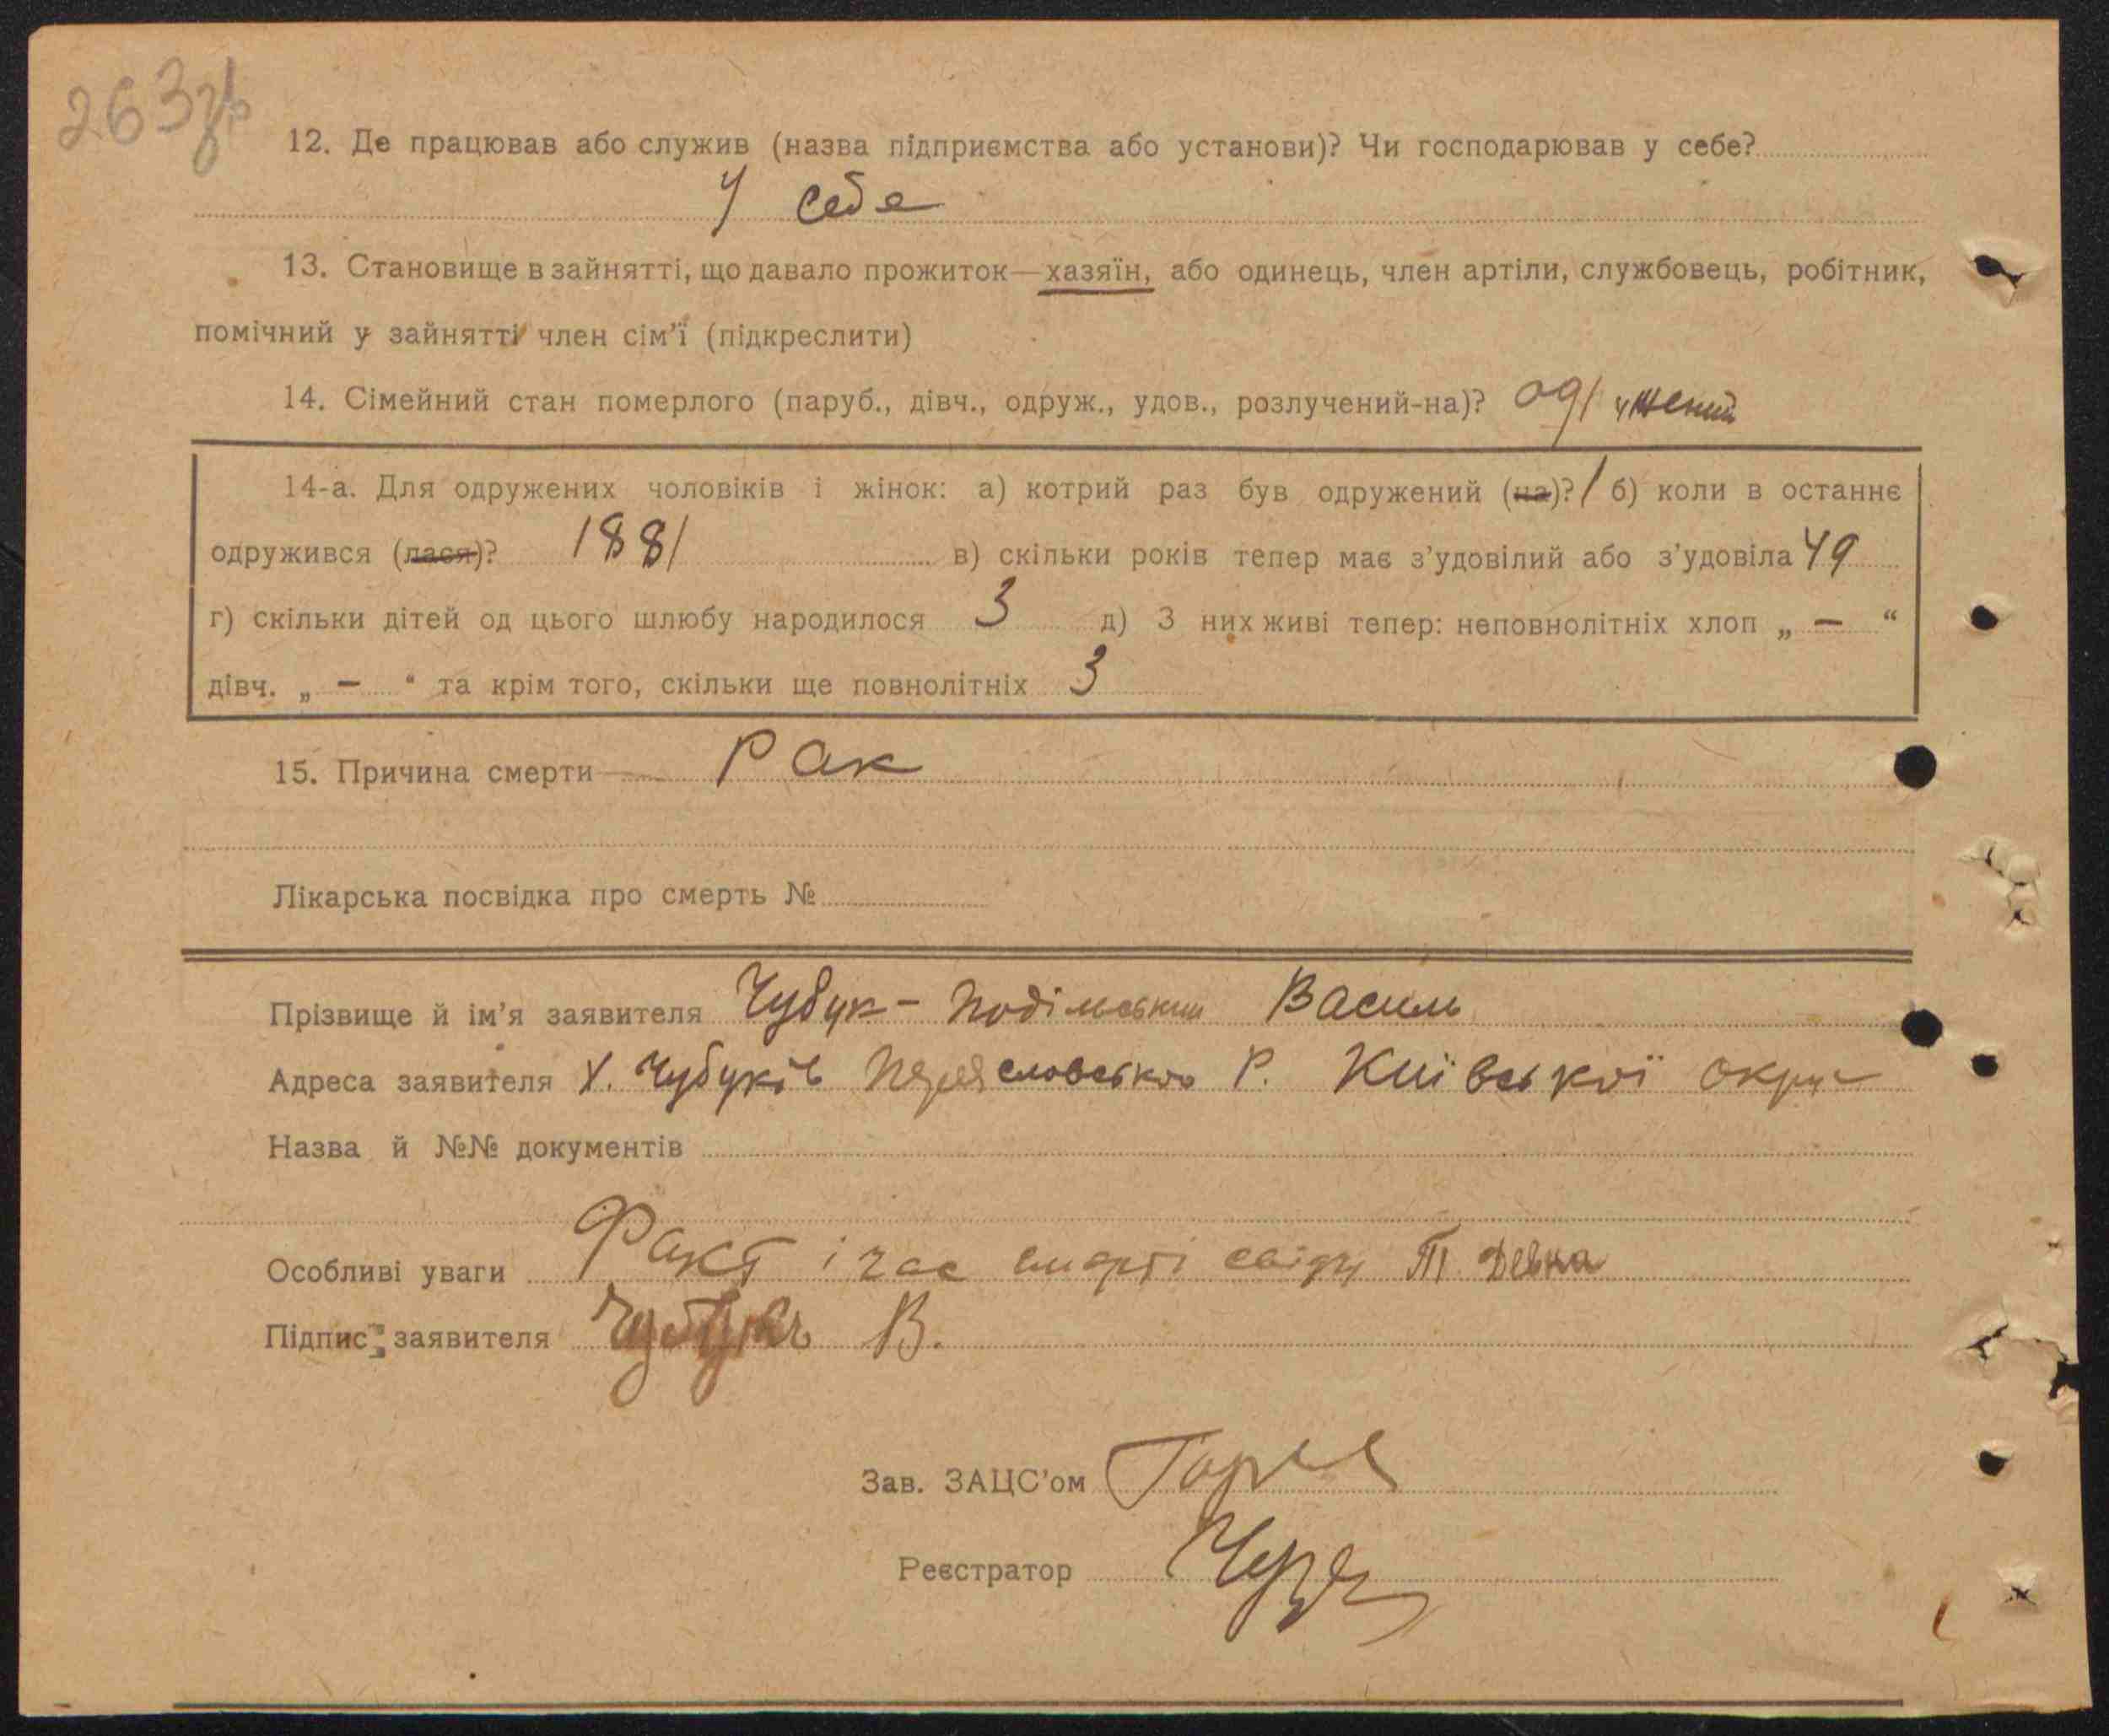 263зв
12. Де працював або служив (назва підприємства або установи)? Чи господарював у себе?
У себе
13. Становище в зайнятті, що давало прожиток—хазяїн, або одинець, член артіли, службовець, робітник,
помічний у зайнятті член сім'ї (підкреслити)
14. Сімейний стан померлого (паруб., дівч., одруж., удов., розлучений-на)? одружений
14-а. Для одружених чоловіків і жінок: а) котрий раз був одружений (на)? 1 б) коли в останнє
одружився (лася)? 1881 в) скільки років тепер має з'удовілий або з'удовіла 49
г) скільки дітей од цього шлюбу народилося 3 д) З них живі тепер: неповнолітніх хлоп „ — “
дівч. „ — “ та крім того, скільки ще повнолітніх 3
15. Причина смерти Рак
Лікарська посвідка про смерть №
Прізвище й ім'я заявителя Чубук-Подільський Василь
Адреса заявителя х. Чубуків Переяславського Р. Київської округ
Назва й №№ документів
Особливі уваги Факт і час смерті
Підпис заявителя Чубукъ В.
Зав. ЗАЦС'ом
Реєстратор